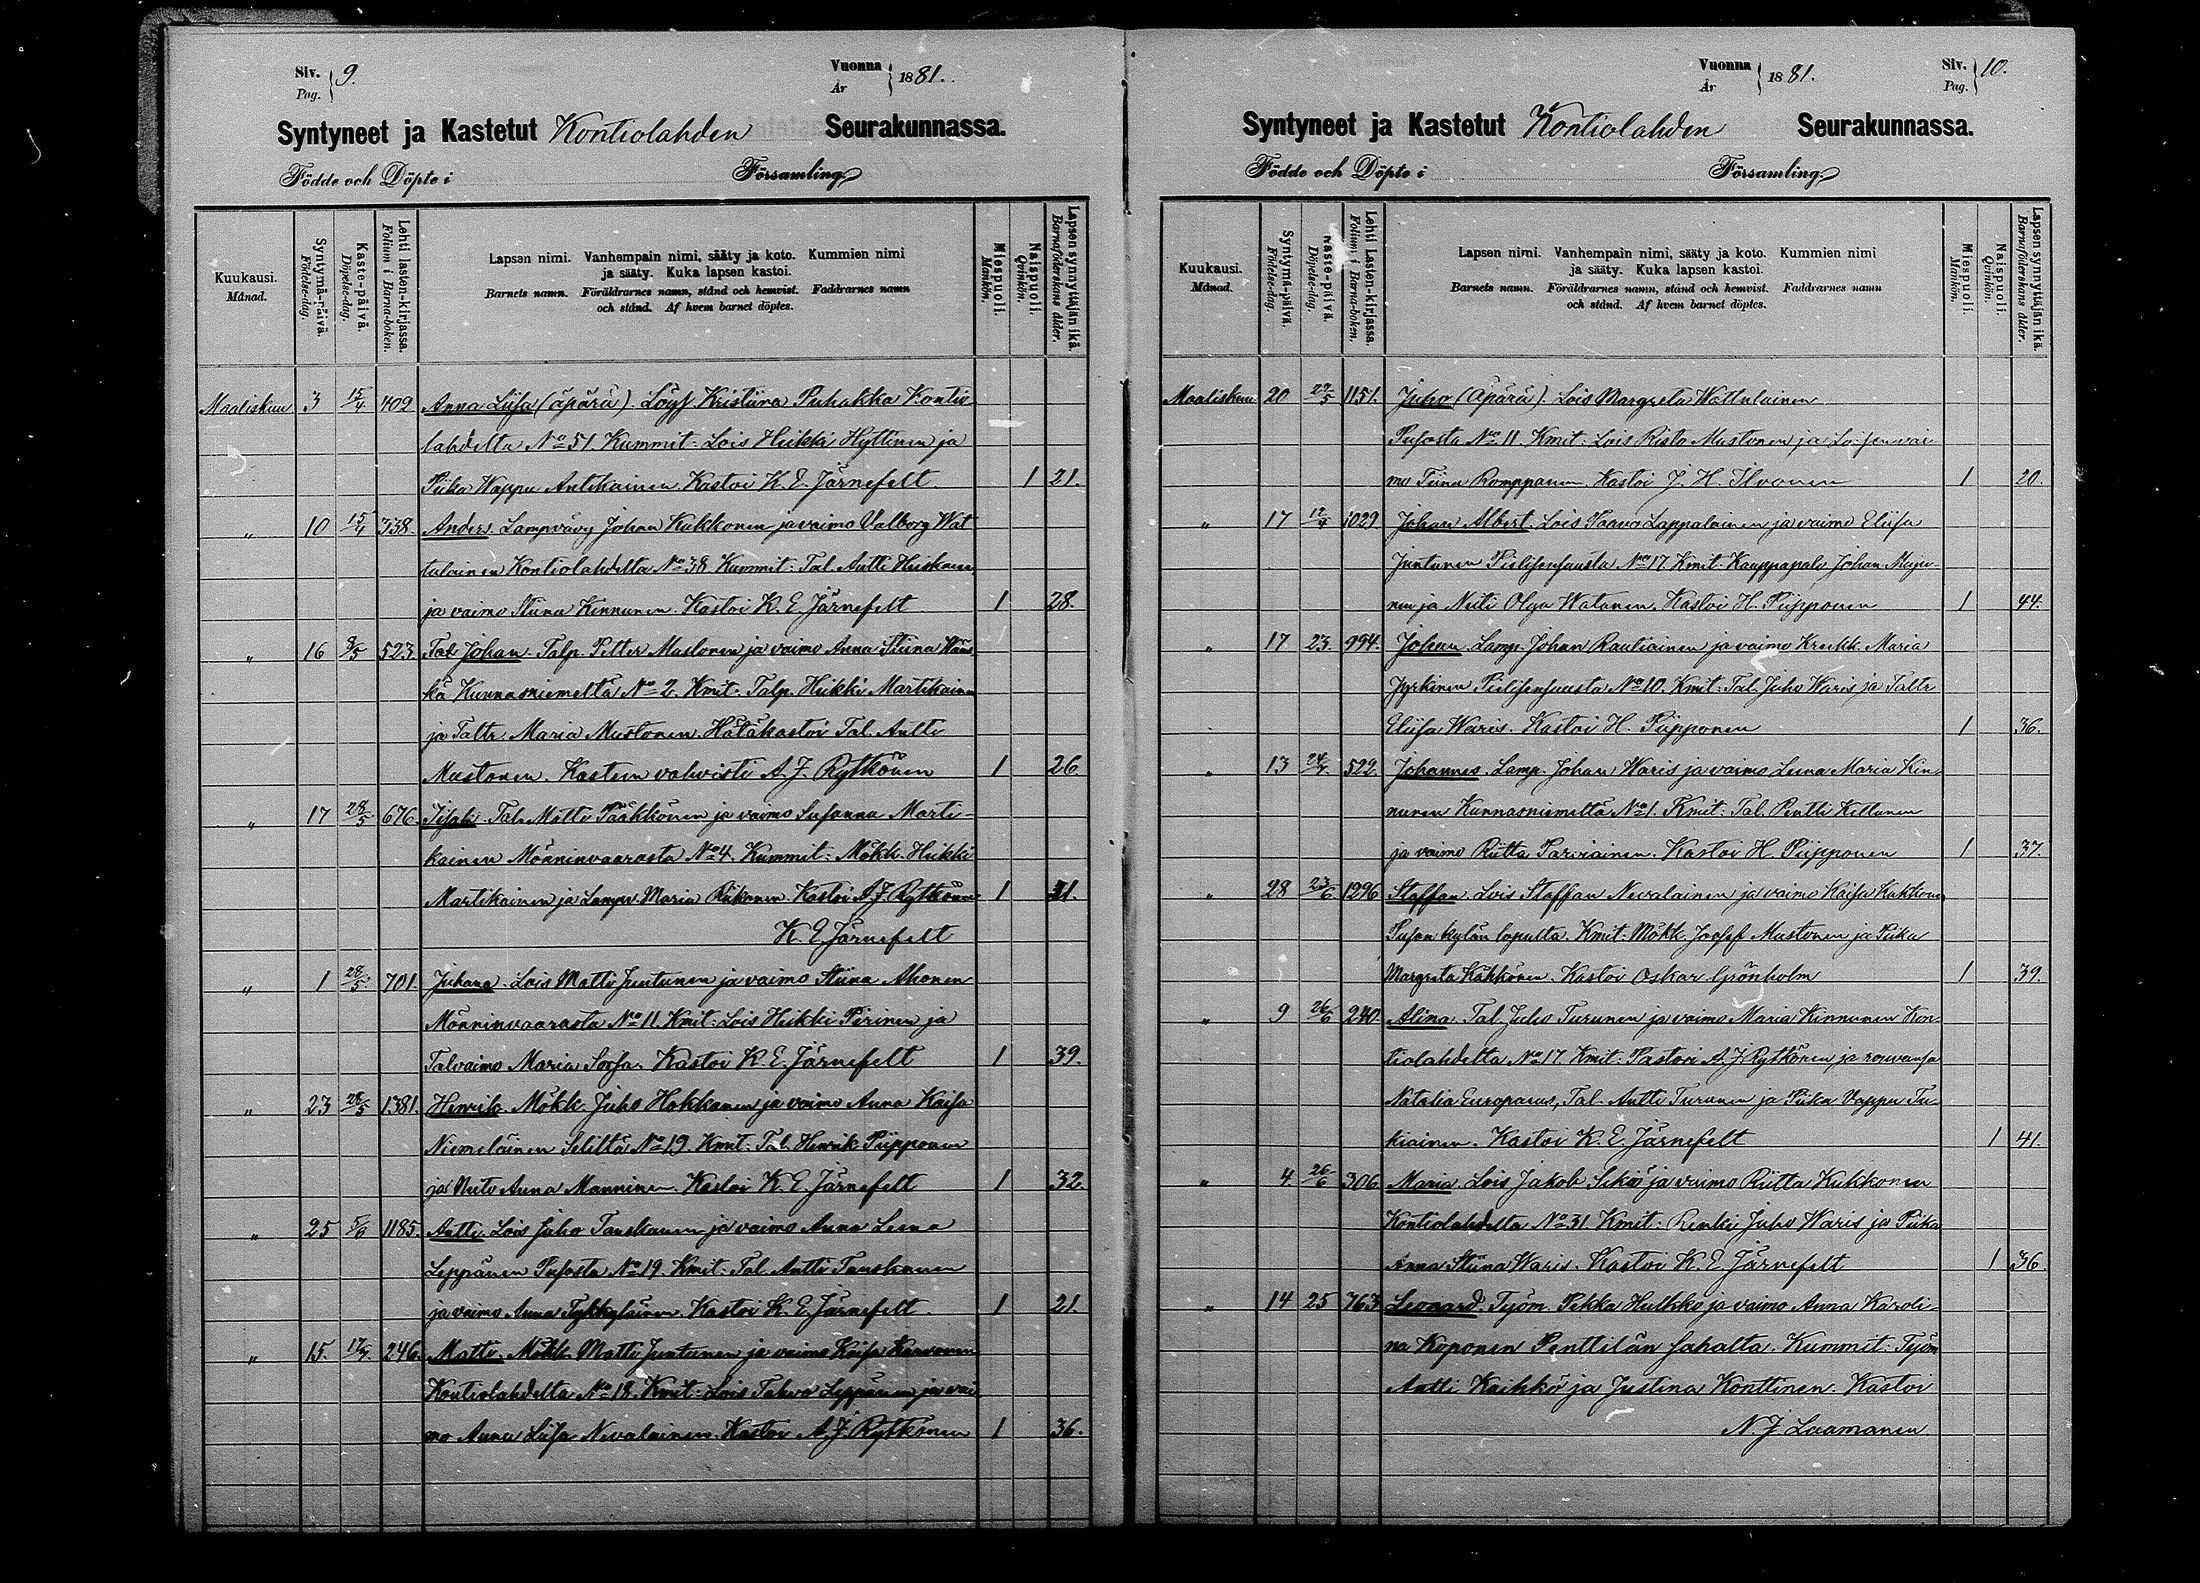 Siv. 9.
Pag.
Vuonna 1881.
År
Syntyneet ja Kastetut Kontiolahden Seurakunnassa.
Födde och Döpte i Församling.
Kuukausi. Månad.
Syntymä-päivä. Födelse-dag.
Kaste-päivä. Döpelse-dag.
Lehti lasten-kirjassa. Folium i Barna-boken.
Lapsen nimi. Vanhempain nimi, sääty ja koto. Kummien nimi
ja sääty. Kuka lapsen kastoi.
Barnets namn. Föräldrarnes namn, stånd och hemvist. Faddrarnes namn
och stånd. Af hvem barnet döptes.
Miespuoli. Mankön.
Naispuoli. Qvinkön.
Lapsen synnyttäjän ikä. Barnaföderskans ålder.
Maaliskuu 3 15/4 409 Anna Liisa (äpärä) Löys. Kristiina Puhakka Kontio
lahdelta No 51. Kummit: Lois Heikki Hyttinen ja
Piika Wappu Antikainen Kastoi K. E. Järnefelt 1 21.
" 10 15/4 338. Anders. Lampvävy Johan Kukkonen ja vaimo Valborg Wat
tulainen Kontiolahdelta No 38. Kummit: Tal. Antti Heiskanen
ja vaimo Stiina Kinnunen. Kastoi K. E. Järnefelt 1 28.
" 16 8/5 523. Tal Johan. Talp. Petter Mustonen ja vaimo Anna Stiina
kä Kunnasniemeltä No 2. Kmit: Talp. Heikki Martikainen
ja Taltr. Maria Mustonen. Hätäkastoi Tal. Antti
Mustonen. Kasteen vahvisti A. J. Rytkönen 1 26.
" 17 28/5 676. Iisaki. Tal. Matti Pääkkönen ja vaimo Susanna Marti-
kainen Mönninvaarasta No 4. Kummit: Mökk. Heikki
Martikainen ja Lampv. Maria Riikonen. Kastoi A. J. Rytkönen 1
K. E. Järnefelt
" 1 28/5 701. Juhana. Lois Matti Juntunen ja vaimo Stiina Ahonen
Mönninvaarasta No 11. Kmit: Lois Heikki Piirinen ja
Talvaimo Maria Kastoi K. E. Järnefelt 1 39.
" 23 28/5 1381. Henrik. Mökk. Juho Hakkanen ja vaimo Anna Kaisa
Niemeläinen Seliltä No 19. Kmit: Tal. Henrik Piipponen
ja Neito Anna Manninen. Kastoi K. E. Järnefelt 1 32.
" 25 5/6 1185. Antti. Lois Juho Tanskanen ja vaimo Anna Leena
Leppänen Pusosta No 19. Kmit: Tal. Antti Tanskanen
ja vaimo Anna Tykkyläinen. Kastoi K. E. Järnefelt 1 21.
" 15. 17/4. 246. Matti. Mökk. Matti Juntunen ja vaimo Kaisa Karvonen
Kontiolahdelta No 18. Kmit: Lois Tahvo Leppänen ja vai
mo Anna Liisa Nevalainen. Kastoi A. J. Rytkönen 1 36.
Vuonna 1881.
År
Siv. 10.
Pag.
Syntyneet ja Kastetut Kontiolahden Seurakunnassa.
Födde och Döpte i Församling.
Kuukausi. Månad.
Syntymä-päivä. Födelse-dag.
Kaste-päivä. Döpelse-dag.
Lehti Lasten-kirjassa. Folium i Barna-boken.
Lapsen nimi. Vanhempain nimi, sääty ja koto. Kummien nimi
ja sääty. Kuka lapsen kastoi.
Barnets namn. Föräldrarnes namn, stånd och hemvist. Faddrarnes namn
och stånd. Af hvem barnet döptes.
Miespuoli. Mankön.
Naispuoli. Qvinkön.
Lapsen synnyttäjän ikä. Barnaföderskans ålder.
Maaliskuu 20 22/5 1151. Juho (äpärä). Lois Margreta Wattulainen
Pusosta No 11. Kmit: Lois Risto Mustonen ja Loisen vai
mo Tiina Romppanen. Kastoi J. H. Ilvonen 1 20.
" 17 12/4 1029. Johan Albert. Lois Paavo Lappalainen ja vaimo Eliisa
Juntunen Pielisensuusta No 17. Kmit: Kauppapalv. Johan Muju
nen ja Neiti Olga Watanen. Kastoi H. Piipponen 1 44.
" 17 23. 994. Johan. Lamp. Johan Rautiainen ja vaimo Kreekk. Maria
Jyrkinen Pielisensuusta No 10. Kmit: Tal. Juho Waris ja Taltr
Eliisa Waris. Kastoi H. Piipponen 1 36.
" 13 24/4 522. Johannes. Lamp. Johan Waris ja vaimo Leena Maria Kin-
nunen Kunnasniemeltä No 1. Kmit: Tal. Pentti Kettunen
ja vaimo Riitta Parviainen. Kastoi H. Piipponen 1 37.
" 28 23/6 1296 Staffan. Lois Staffan Nevalainen ja vaimo Kaisa Kukkonen
Puson kylän lopulta. Kmit: Mökk. Josef Mustonen ja Piika
Margreta Käkkönen. Kastoi Oskar Grönholm 1 39.
" 9 26/6 240. Alina. Tal. Juho Turunen ja vaimo Maria Kinnunen Kon-
tiolahdelta No 17. Kmit: Pastori A. J. Rytkönen ja rouvansa
Natalia Europaeus, Tal. Antti Turunen ja Piika Vappu Tu-
kiainen. Kastoi K. E. Järnefelt 1 41.
" 4 26/6 306. Maria. Lois Jakob Sikiö ja vaimo Riitta Kukkonen
Kontiolahdelta No 31. Kmit: Renki Juho Waris ja Piika
Anna Stiina Waris. Kastoi K. E. Järnefelt 1 36.
" 14 25 763 Leonard. Työm. Pekka Hulkko ja vaimo Anna Karoli-
na Koponen Penttilän sahalta. Kummit: Työm.
Antti Kaihkö ja Justina Konttinen. Kastoi
N. J. Laamanen